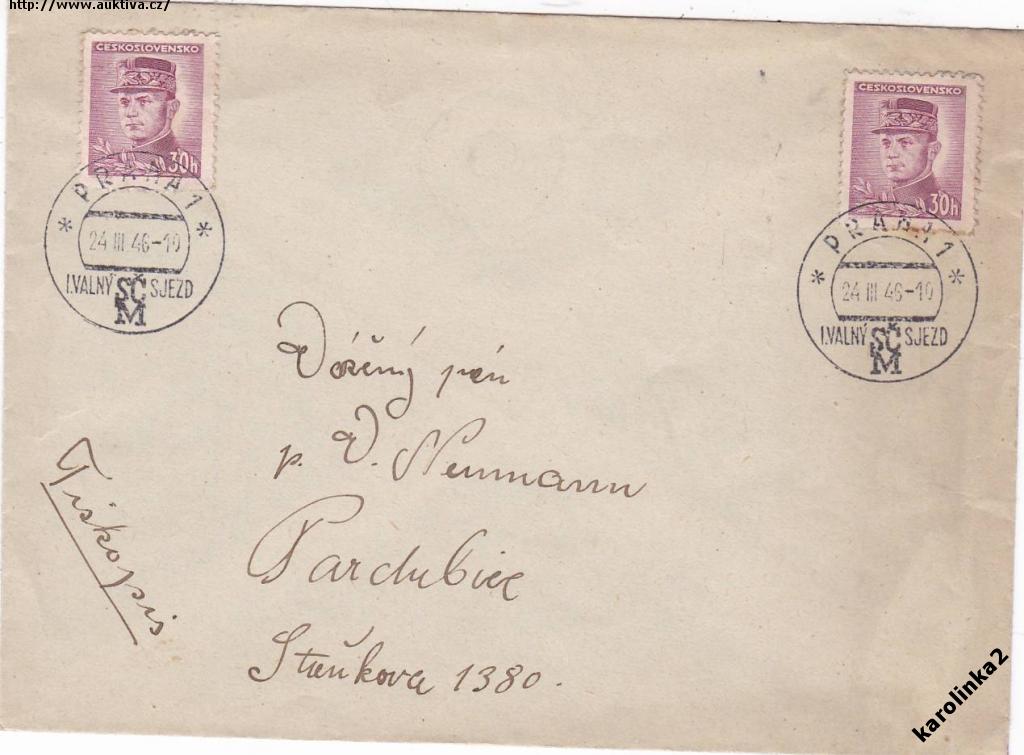 http://www.auktiva.cz/
ČESKOSLOVENSKO
30h
PRAHA 1
24 III 46-10
I.VALNÝ SČM SJEZD
ČESKOSLOVENSKO
30h
PRAHA 1
24 III 46-10
I.VALNÝ SČM SJEZD
Vážený pán
p. V. Neumann
Pardubice
1380.
Tiskopis
karolinka2